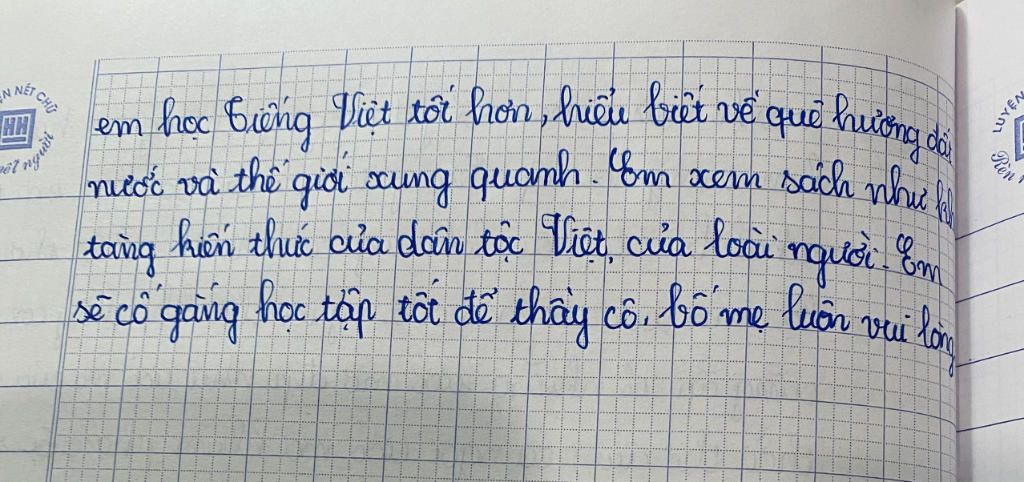 em học tiếng Việt tốt hơn, hiểu biết về quê hương đất
nước và thế giới xung quanh. Em xem sách như
tàng kiến thức của dân tộc Việt, của loài người. Em
sẽ cố gắng học tập tốt để thầy cô, bố mẹ luôn vui lòng
N NÉT CHỮ
HH
nết người
LUYỆN
Rèn